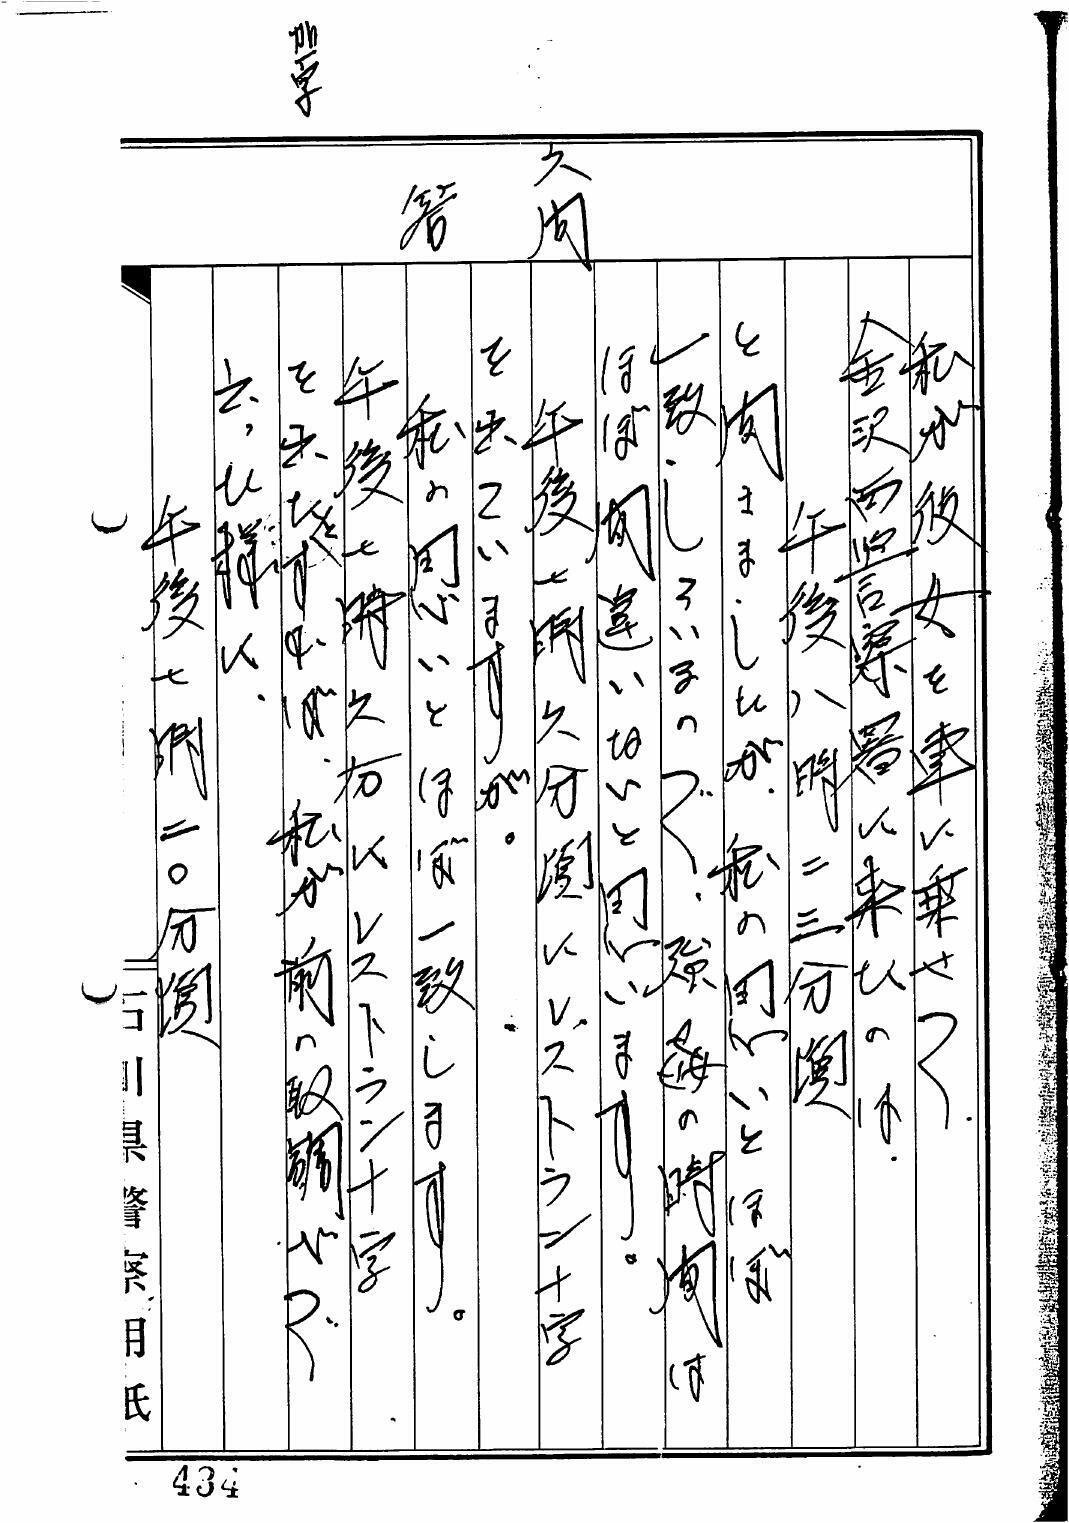 加一字
私が彼女を車に乗せて、
金沢西警察署に来たのは、
午後八時二三分頃
と聞きましたが、私の思いとほぼ
一致しているので、強姦の時間は
ほぼ間違いないと思います。
六問
午後七時六分頃にレストラン十字
を出ていますが。
答
私の思いとほぼ一致します。
午後七時六分にレストラン十字
を出たとすれば、私が前の取調べで、
云った様に、
午後七時二〇分頃
石川県警察用紙
434